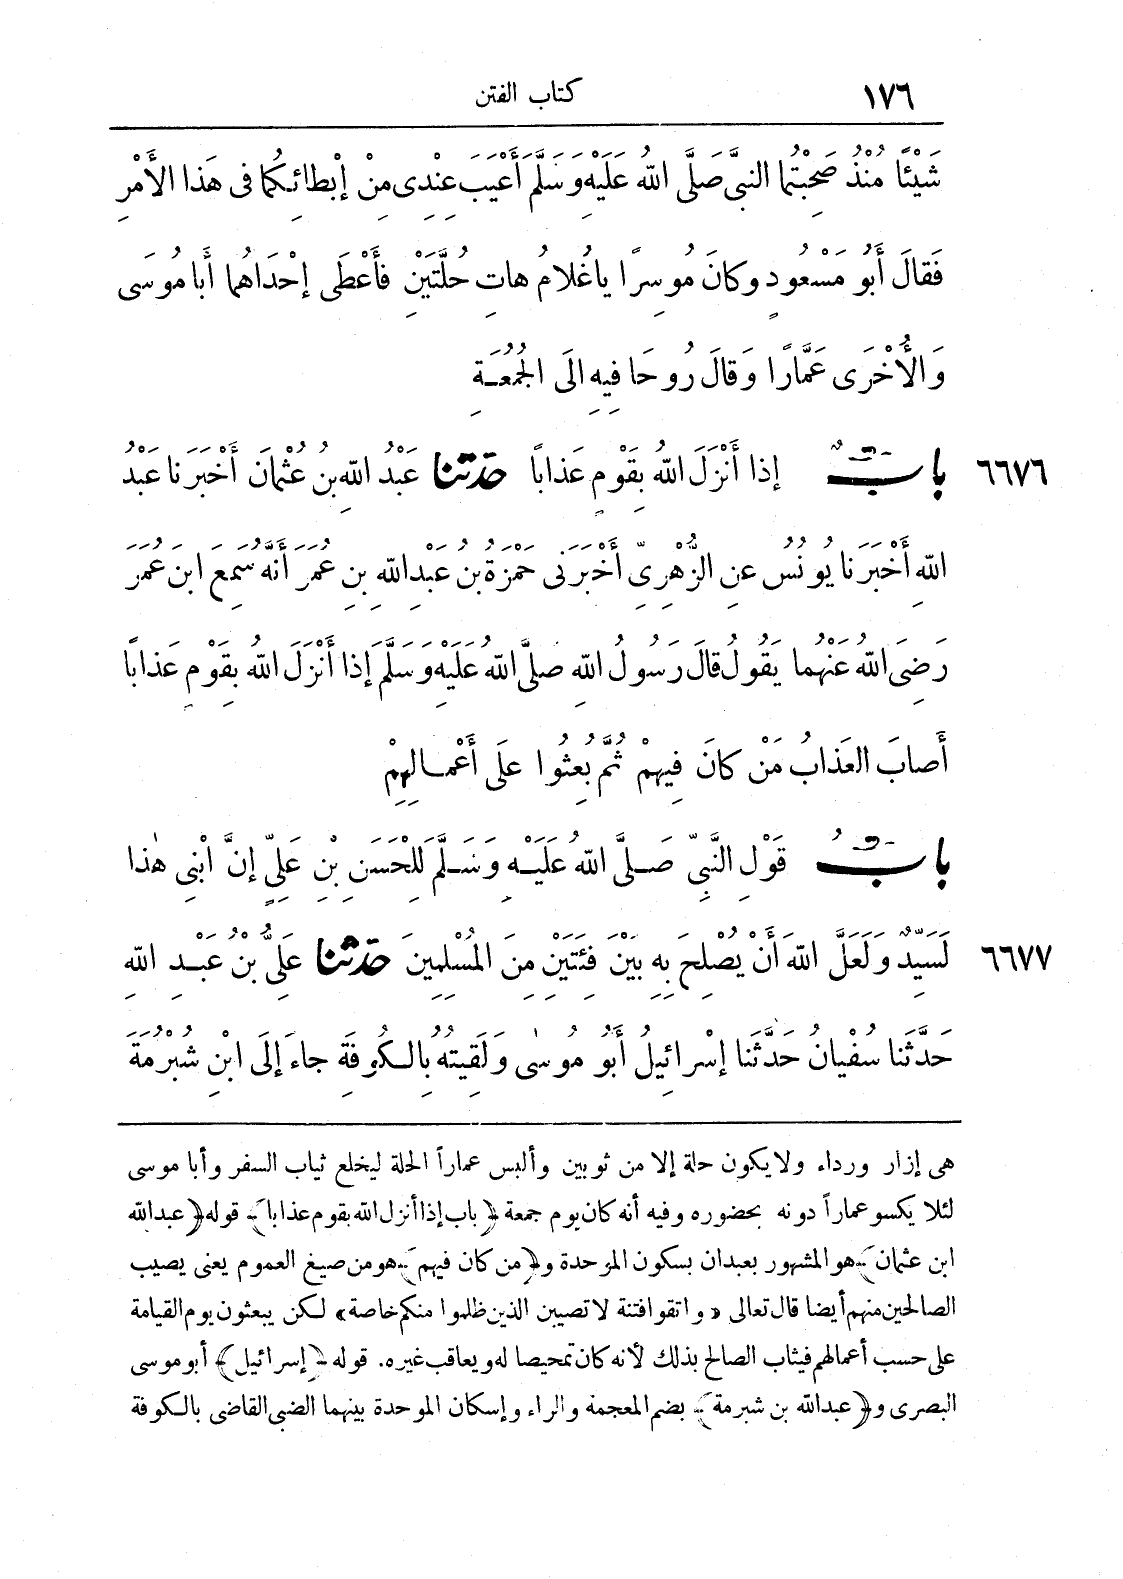 ١٧٦ كتاب الفتن
شَيْئًا مُنْذُ صَحِبْتُمَا النبىَّ صَلَّى اللهُ عَلَيْهِ وَسَلَّمَ أَعْيَبَ عِنْدِى مِنْ إِبْطائِكُما فى هَذا الأَمْرِ
فَقالَ أَبُو مَسْعُودٍ وكانَ مُوسِرًا ياغُلامُ هاتِ حُلَّتَيْنِ فأَعْطَى إِحْدَاهُما أَبا مُوسَى
وَالأُخْرَى عَمَّارًا وَقالَ رُوحَا فِيهِ إِلَى الجُمُعَةِ
٦٦٧٦ بابٌ إذا أَنْزَلَ اللهُ بِقَوْمٍ عَذابًا حدثنا عَبْدُ اللهِ بنُ عُثْمانَ أَخْبَرَنا عَبْدُ
اللهِ أَخْبَرَنا يُونُسُ عنِ الزُّهْرِىِّ أَخْبَرَنى حَمْزَةُ بنُ عَبْدِ اللهِ بنِ عُمَرَ أَنَّهُ سَمِعَ ابنَ عُمَرَ
رَضِىَ اللهُ عَنْهُما يَقُولُ قالَ رَسُولُ اللهِ صَلَّى اللهُ عَلَيْهِ وَسَلَّمَ إذا أَنْزَلَ اللهُ بِقَوْمٍ عَذابًا
أَصابَ العَذابُ مَنْ كانَ فِيهِمْ ثُمَّ بُعِثُوا علَى أَعْمالِهِمْ
بابُ قَوْلِ النَّبِىِّ صَلَّى اللهُ عَلَيْهِ وَسَلَّمَ لِلْحَسَنِ بْنِ عَلِىٍّ إنَّ ابْنِى هٰذا
٦٦٧٧ لَسَيِّدٌ ولَعَلَّ اللهَ أَنْ يُصْلِحَ بِهِ بَيْنَ فِئَتَيْنِ مِنَ المُسْلِمِينَ حدثنا عَلِىُّ بْنُ عَبْدِ اللهِ
حَدَّثَنا سُفْيانُ حَدَّثَنا إِسْرائِيلُ أَبُو مُوسٰى وَلَقِيتُهُ بِالكُوفَةِ جاءَ إلَى ابْنِ شُبْرُمَةَ
هى إزار ورداء ولايكون حلة إلا من ثوبين وألبس عماراً الحلة ليخلع ثياب السفر وأبا موسى
لئلا يكسو عماراً دونه بحضوره وفيه أنه كان يوم جمعة ﴿باب إذا أنزل الله بقوم عذابا﴾ قوله ﴿عبدالله
ابن عثمان﴾ هو المشهور بعبدان بسكون الموحدة و﴿من كان فيهم﴾ هو من صيغ العموم يعنى يصيب
الصالحين منهم أيضا قال تعالى «واتقوا فتنة لا تصيبن الذين ظلموا منكم خاصة» لكن يبعثون يوم القيامة
على حسب أعمالهم فيثاب الصالح بذلك لأنه كان تمحيصا له ويعاقب غيره. قوله ﴿إسرائيل﴾ أبو موسى
البصرى و﴿عبدالله بن شبرمة﴾ بضم المعجمة والراء وإسكان الموحدة بينهما الضبى القاضى بالكوفة